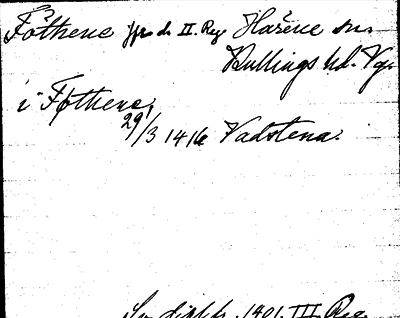 Föthene fprs de II. Reg Haŕene sn.
Kullings hd. Vg.
i Føthene,
29/3 1416 Vadstena.
Sv. dipl. fr. 1401. III. Reg.